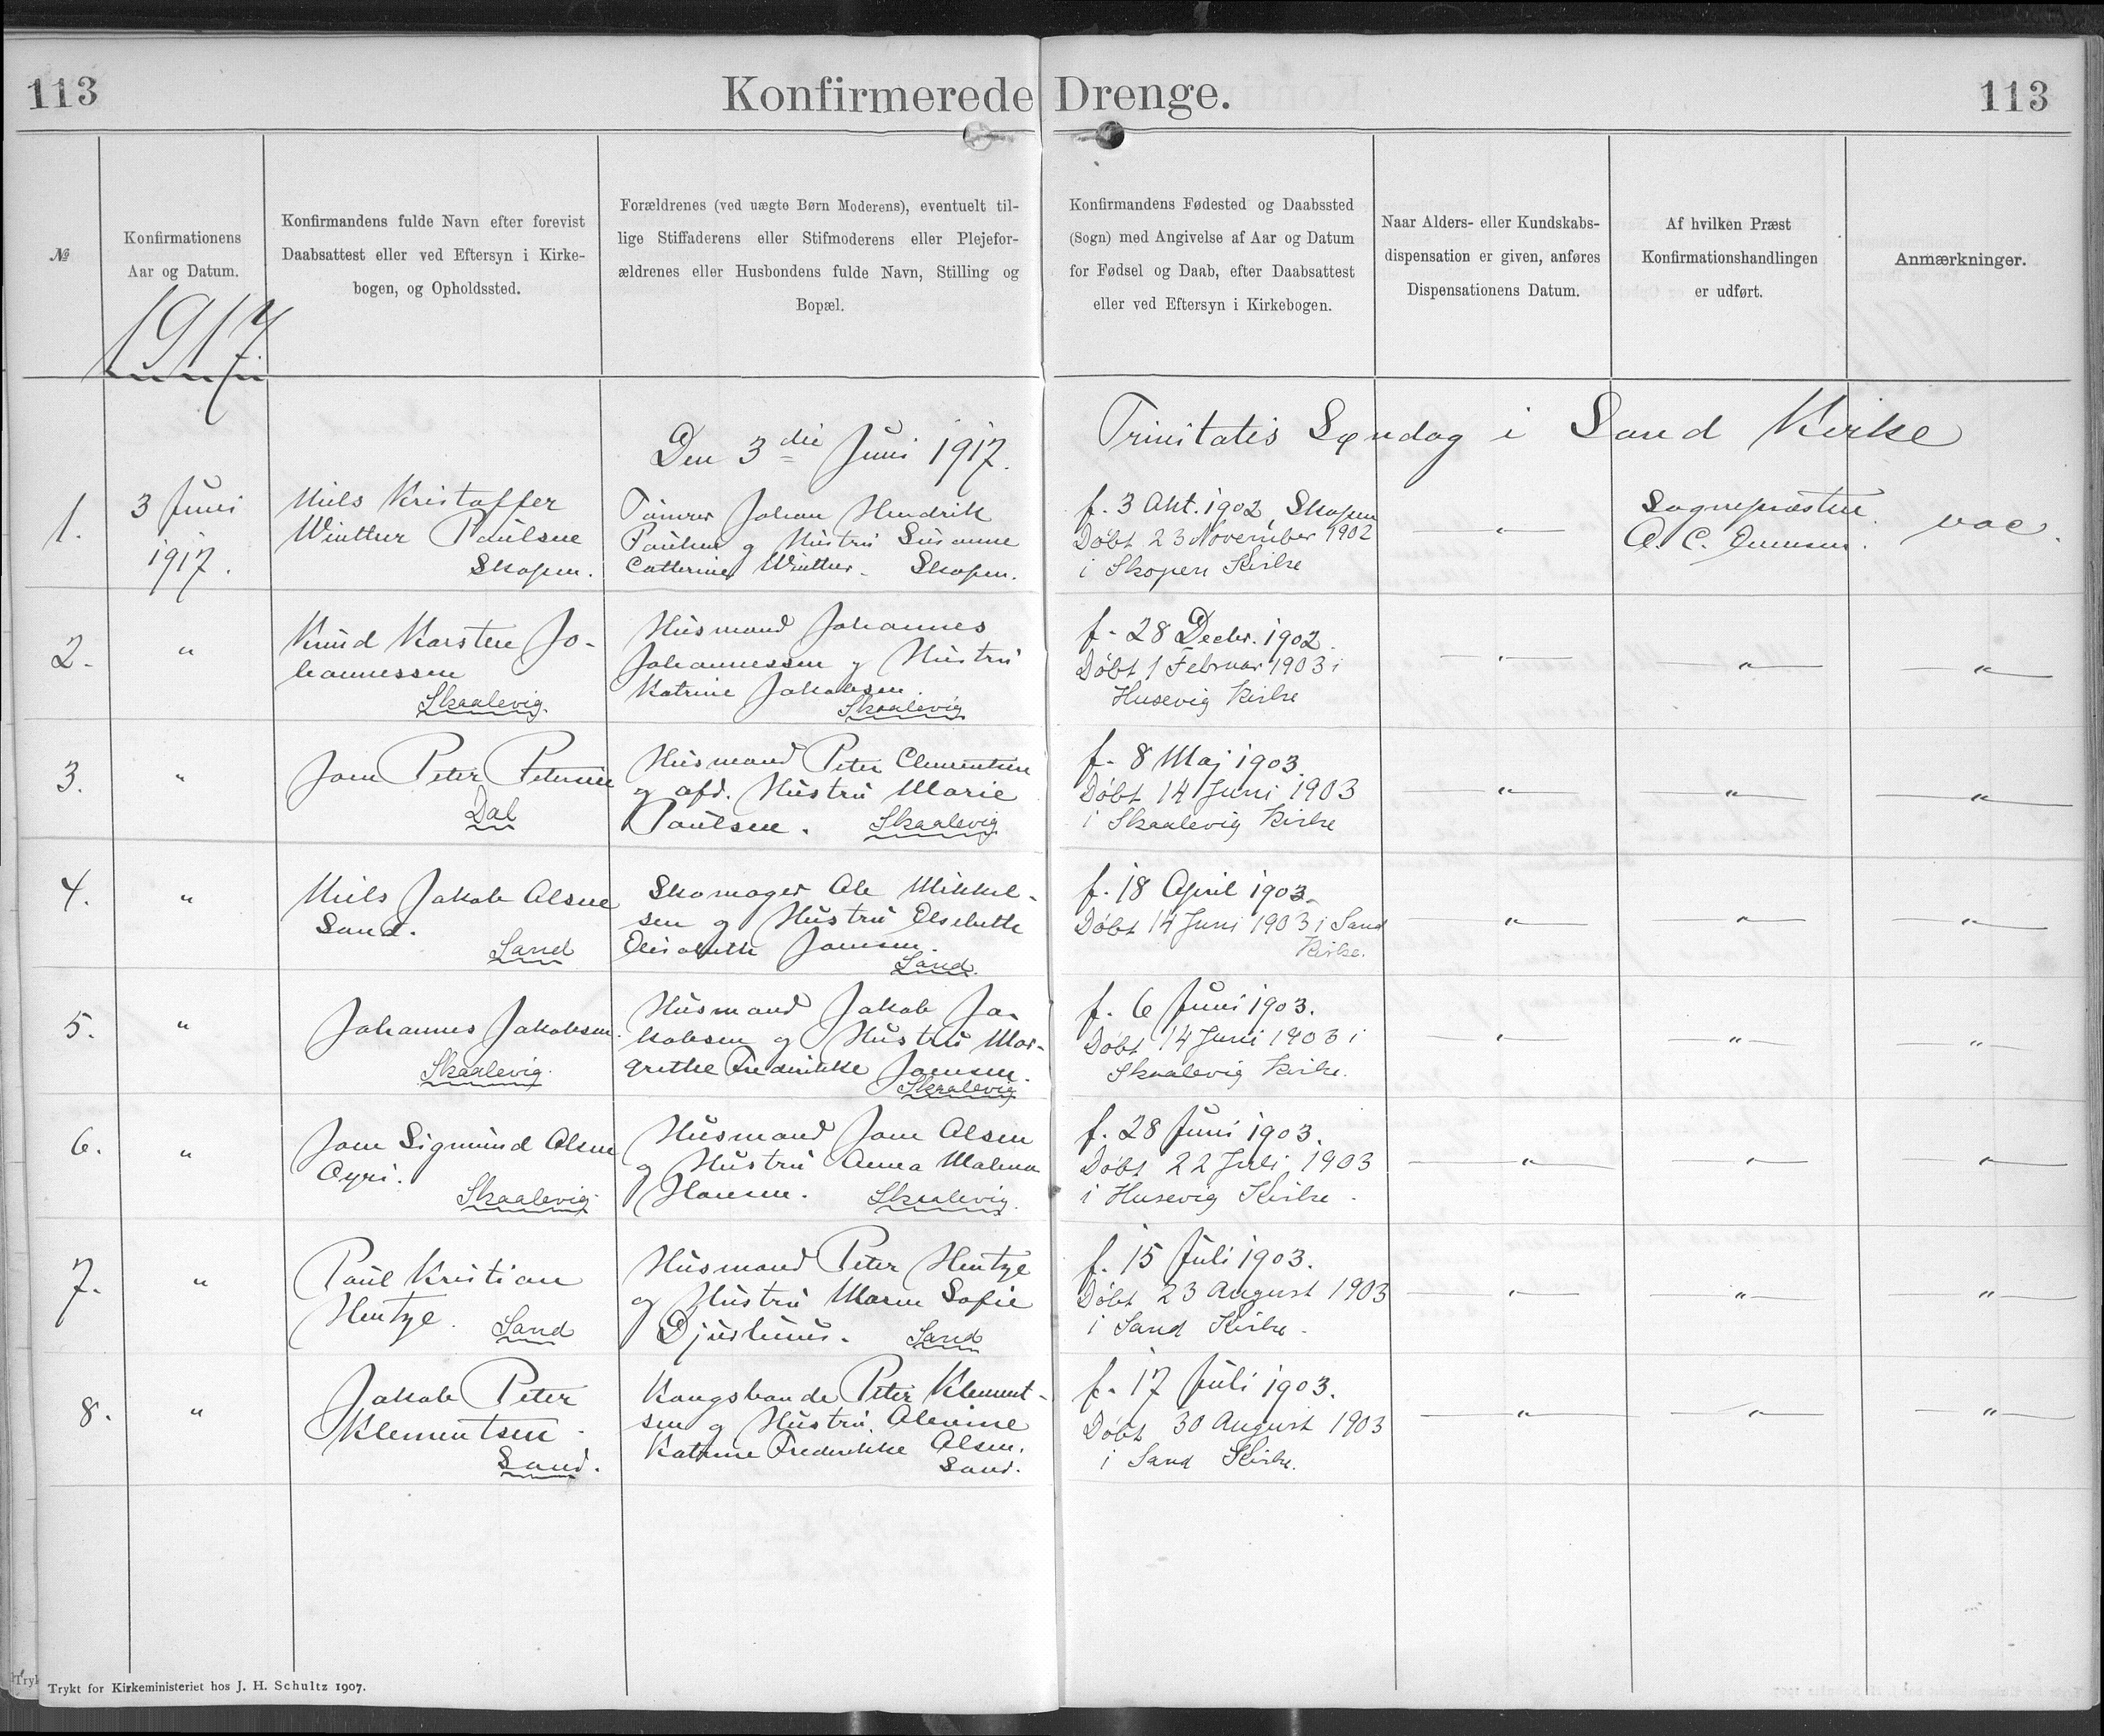 113
Konfirmerede Drenge.
113
№
Konfirmationens
Aar og Datum.
Konfirmandens fulde Navn efter forevist
Daabsattest eller ved Eftersyn i Kirke-
bogen, og Opholdssted.
Forældrenes (ved uægte Børn Moderens), eventuelt til-
lige Stiffaderens eller Stifmoderens eller Plejefor-
ældrenes eller Husbondens fulde Navn, Stilling og
Bopæl.
Konfirmandens Fødested og Daabssted
(Sogn) med Angivelse af Aar og Datum
for Fødsel og Daab, efter Daabsattest
eller ved Eftersyn i Kirkebogen.
Naar Alders- eller Kundskabs-
dispensation er given, anføres
Dispensationens Datum.
Af hvilken Præst
Konfirmationshandlingen
er udført.
Anmærkninger.
1917.
Den 3die Juni 1917.
Trinitatis Søndag i Sand Kirke
1.
3 Juni
1917.
Niels Kristoffer
Winther Paulsen
Skopen.
Tømrer Johan Hendrik
Paulsen og Hustru Susanne
Catherine Winther. Skopen.
f. 3 Okt. 1902 Skopen
Døbt 23 November 1902
i Skopen Kirke
"
Sognepræsten
A. C.
vac.
2.
"
Knud Karsten Jo-
hannessen
Skaalevig.
Husmand Johannes
Johannessen og Hustru
Katrine Jakobsen.
Skaalevig
f. 28 Decbr. 1902.
Døbt 1 Februar 1903 i
Husevig Kirke
"
"
"
3.
"
Joen Peter Petersen
Dal
Husmand Peter Clementsen
og afd. Hustru Marie
Paulsen. Skaalevig
f. 8 Maj 1903.
Døbt 14 Juni 1903
i Skaalevig Kirke
"
"
"
4.
"
Niels Jakob Olsen
Sand.
Sand
Skomager Ole Mikkel-
sen og Hustru Elsebeth
Elisabeth Joensen.
Sand.
f. 18 April 1903.
Døbt 14 Juni 1903 i Sand
Kirke.
"
"
"
5.
"
Johannes Jakobsen.
Skaalevig.
Husmand Jakob Ja-
kobsen og Hustru Mar-
grethe Frederikke Joensen.
Skaalevig
f. 6 Juni 1903.
Døbt 14 Juni 1903 i
Skaalevig Kirke.
"
"
"
6.
"
Joen Sigmund Olsen
Oyri.
Skaalevig
Husmand Joen Olsen
og Hustru Anna Malena
Hansen. Skaalevig.
f. 28 Juni 1903.
Døbt 22 Juli 1903
i Husevig Kirke.
"
"
"
7.
"
Paul Kristian
Hentze. Sand
Husmand Peter Hentze
og Hustru Maren Sofie
Djurhuus. Sand
f. 15 Juli 1903.
Døbt 23 August 1903
i Sand Kirke.
"
"
"
8.
"
Jakob Peter
Klementsen.
Sand.
Kongsbonde Peter Klement-
sen og Hustru Olevine
Katrine Frederikke Olsen.
Sand.
f. 17 Juli 1903.
Døbt 30 August 1903
i Sand Kirke.
"
"
"
Trykt for Kirkeministeriet hos J. H. Schultz 1907.